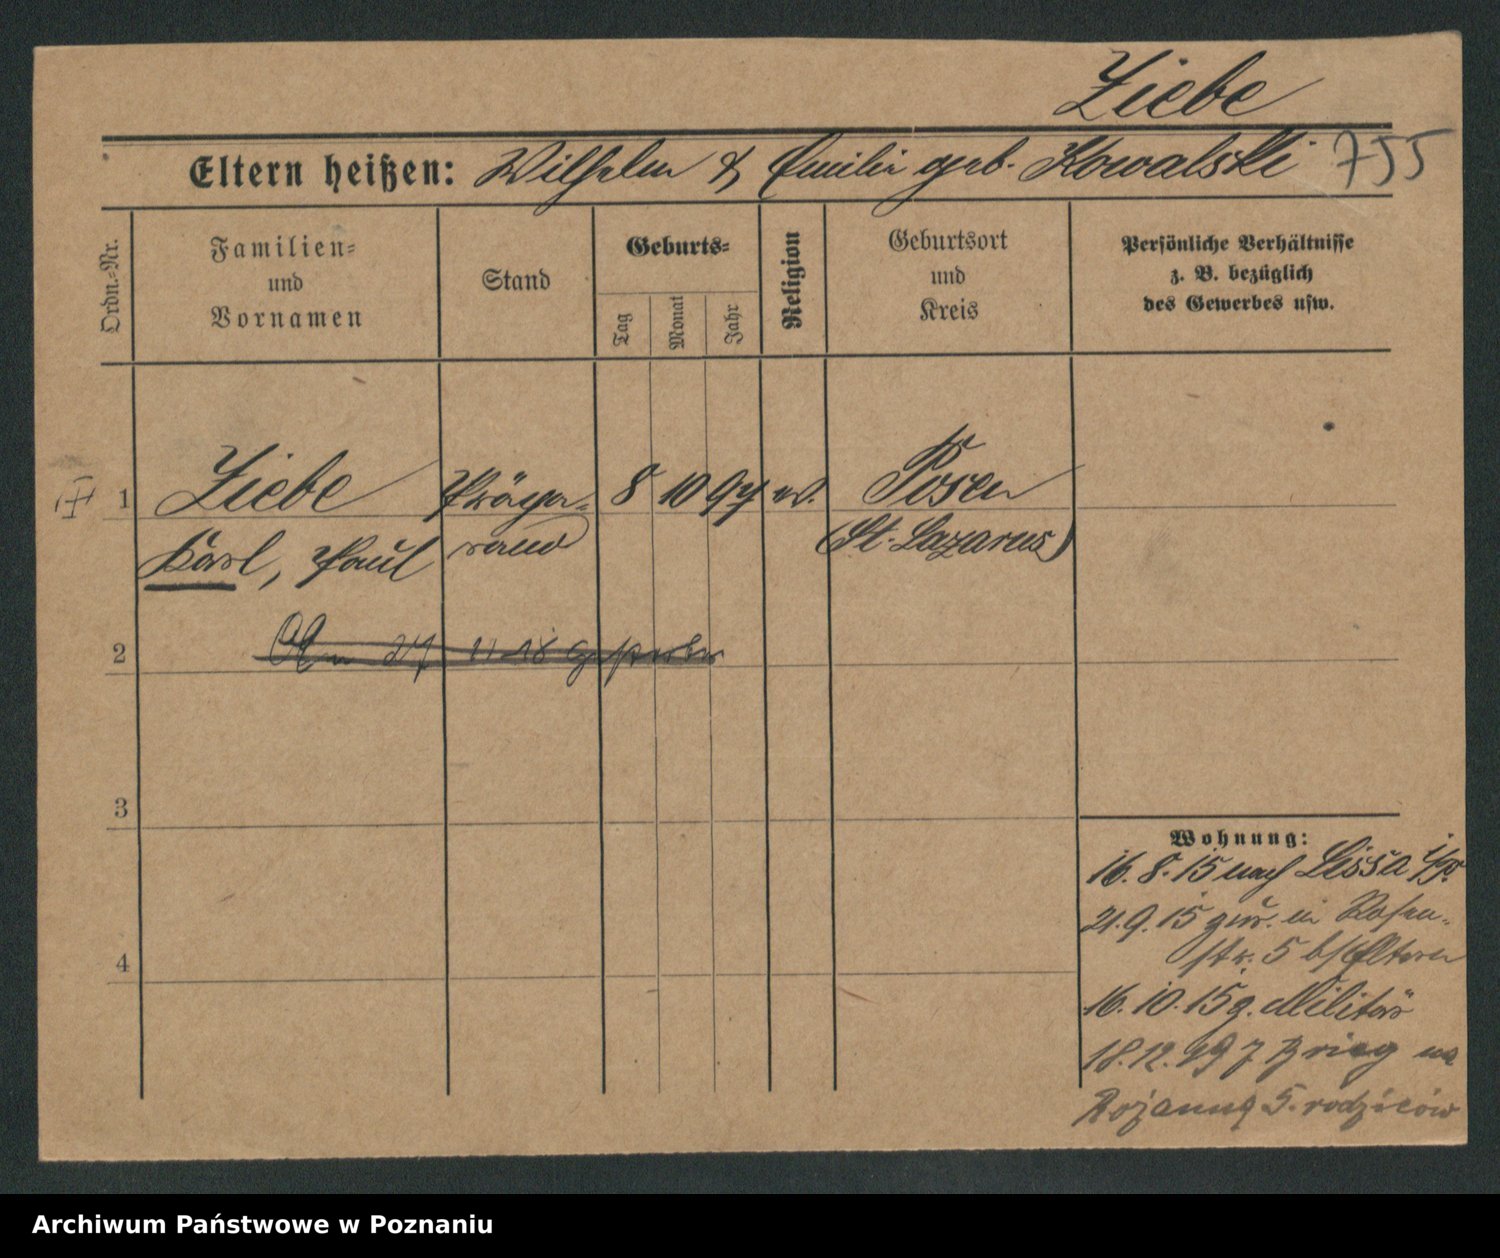 Ziebe
Eltern heißen: Wilhelm & Emilie geb. Kowalski 755
Ordn.-Nr.
Familien-
und
Vornamen
Stand
Geburts-
Tag
Monat
Jahr
Religion
Geburtsort
und
Kreis
Persönliche Verhältnisse
z. B. bezüglich
des Gewerbes usw.
1 Ziebe Präpa- 8 10 97 ev. Posen
Karl, Paul rand (St. Lazarus)
2 Am 27 11 18 gestorben
3
4
Wohnung:
16.8.15 nach Lissa i/P.
21.9.15 zur. in Rosen-
str. 5 b/Eltern
16.10.15 z. Militär
18.12.19 z Brieg na
Rożanną 5. rodziców
Archiwum Państwowe w Poznaniu